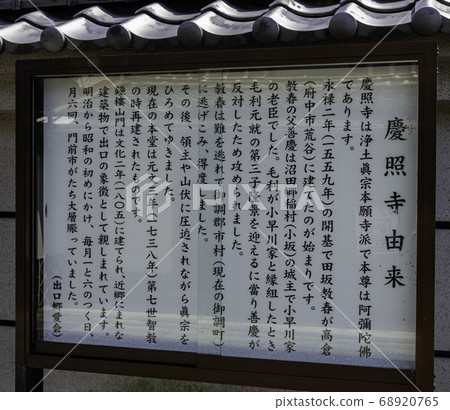 慶照寺由来
慶照寺は浄土眞宗本願寺派で本尊は阿彌陀佛
であります。
永禄二年(一五五九年)の開基で田坂教春が高倉
(府中市荒谷)に建てたのが始まりです。
教春の父善慶は沼田郷稲村(小坂)の城主で小早川家
の老臣でした。毛利が小早川家と縁組したとき
毛利元就の第三子隆景を迎えるに當り善慶が
反対したため攻められました。
教春は難を逃れて御調郡市村(現在の御調町)
に逃げこみ、得度しました。
その後、領主や山伏に圧迫されながら眞宗を
ひろめてゆきました。
現在の本堂は元文三年(一七三八年)第七世智教
の時再建されたものです。
鐘樓山門は文化二年(一八〇五)に建てられ、近郷にまれな
建築物で出口の象徴として親しまれています。
明治から昭和の初めにかけ、毎月一と六のつく日、
月六回、門前市がたち大層賑っていました。
(出口郷愛会)
68920765